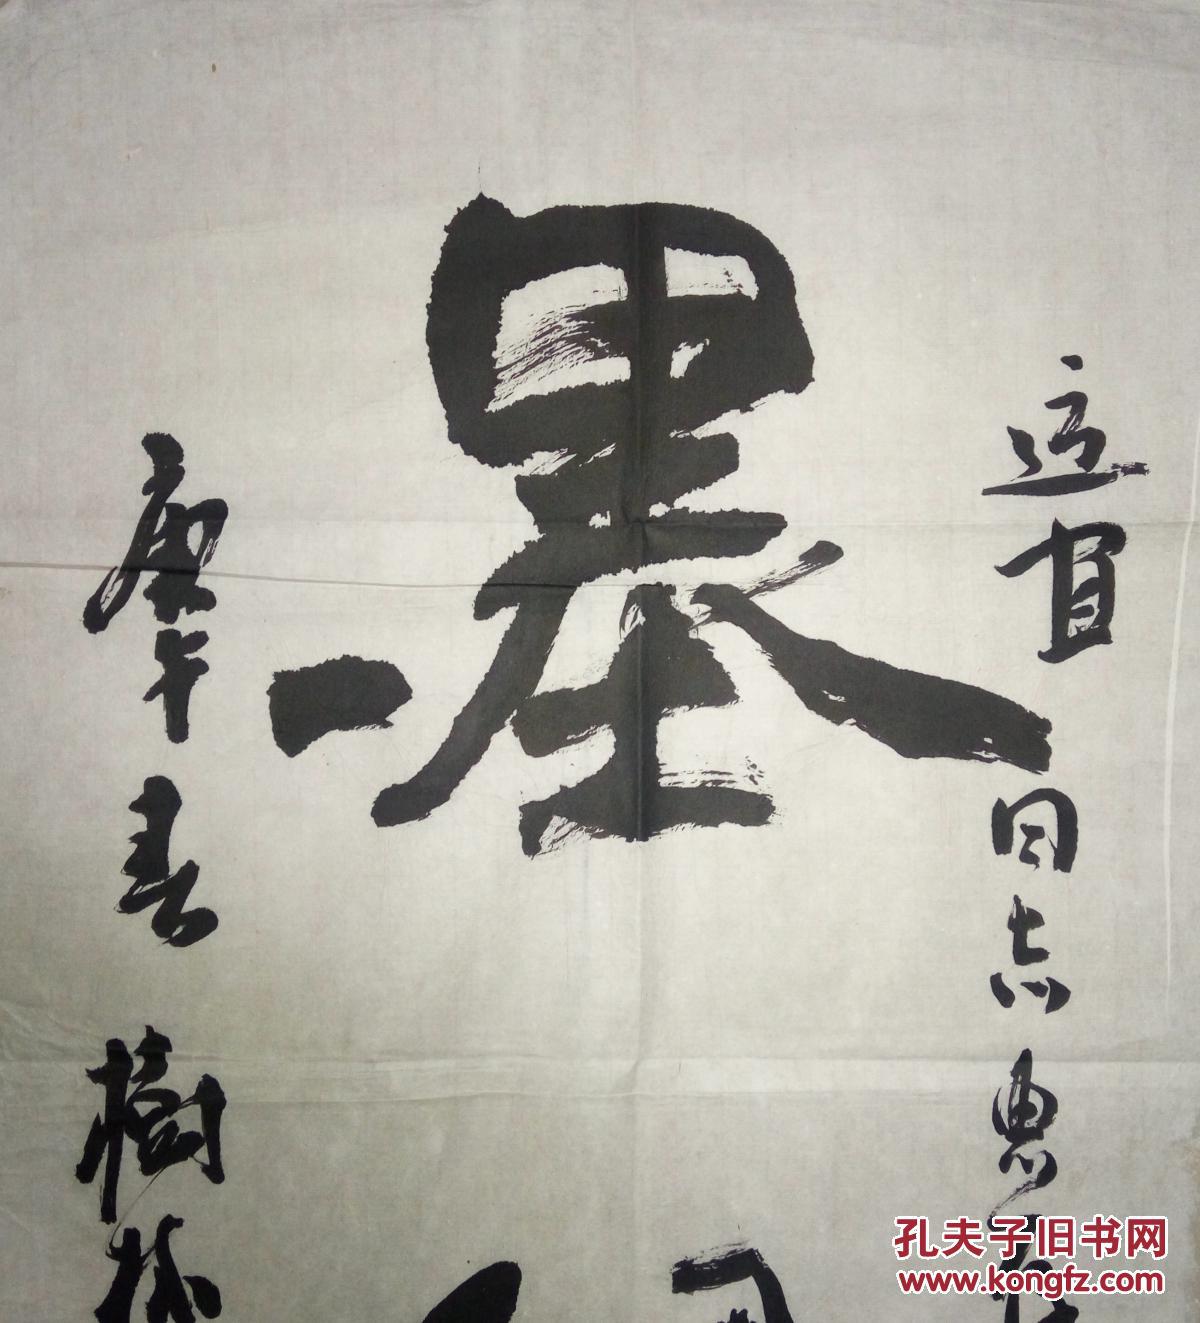 宜同志惠存
墨
庚午春樹
孔夫子旧书网
www.kongfz.com